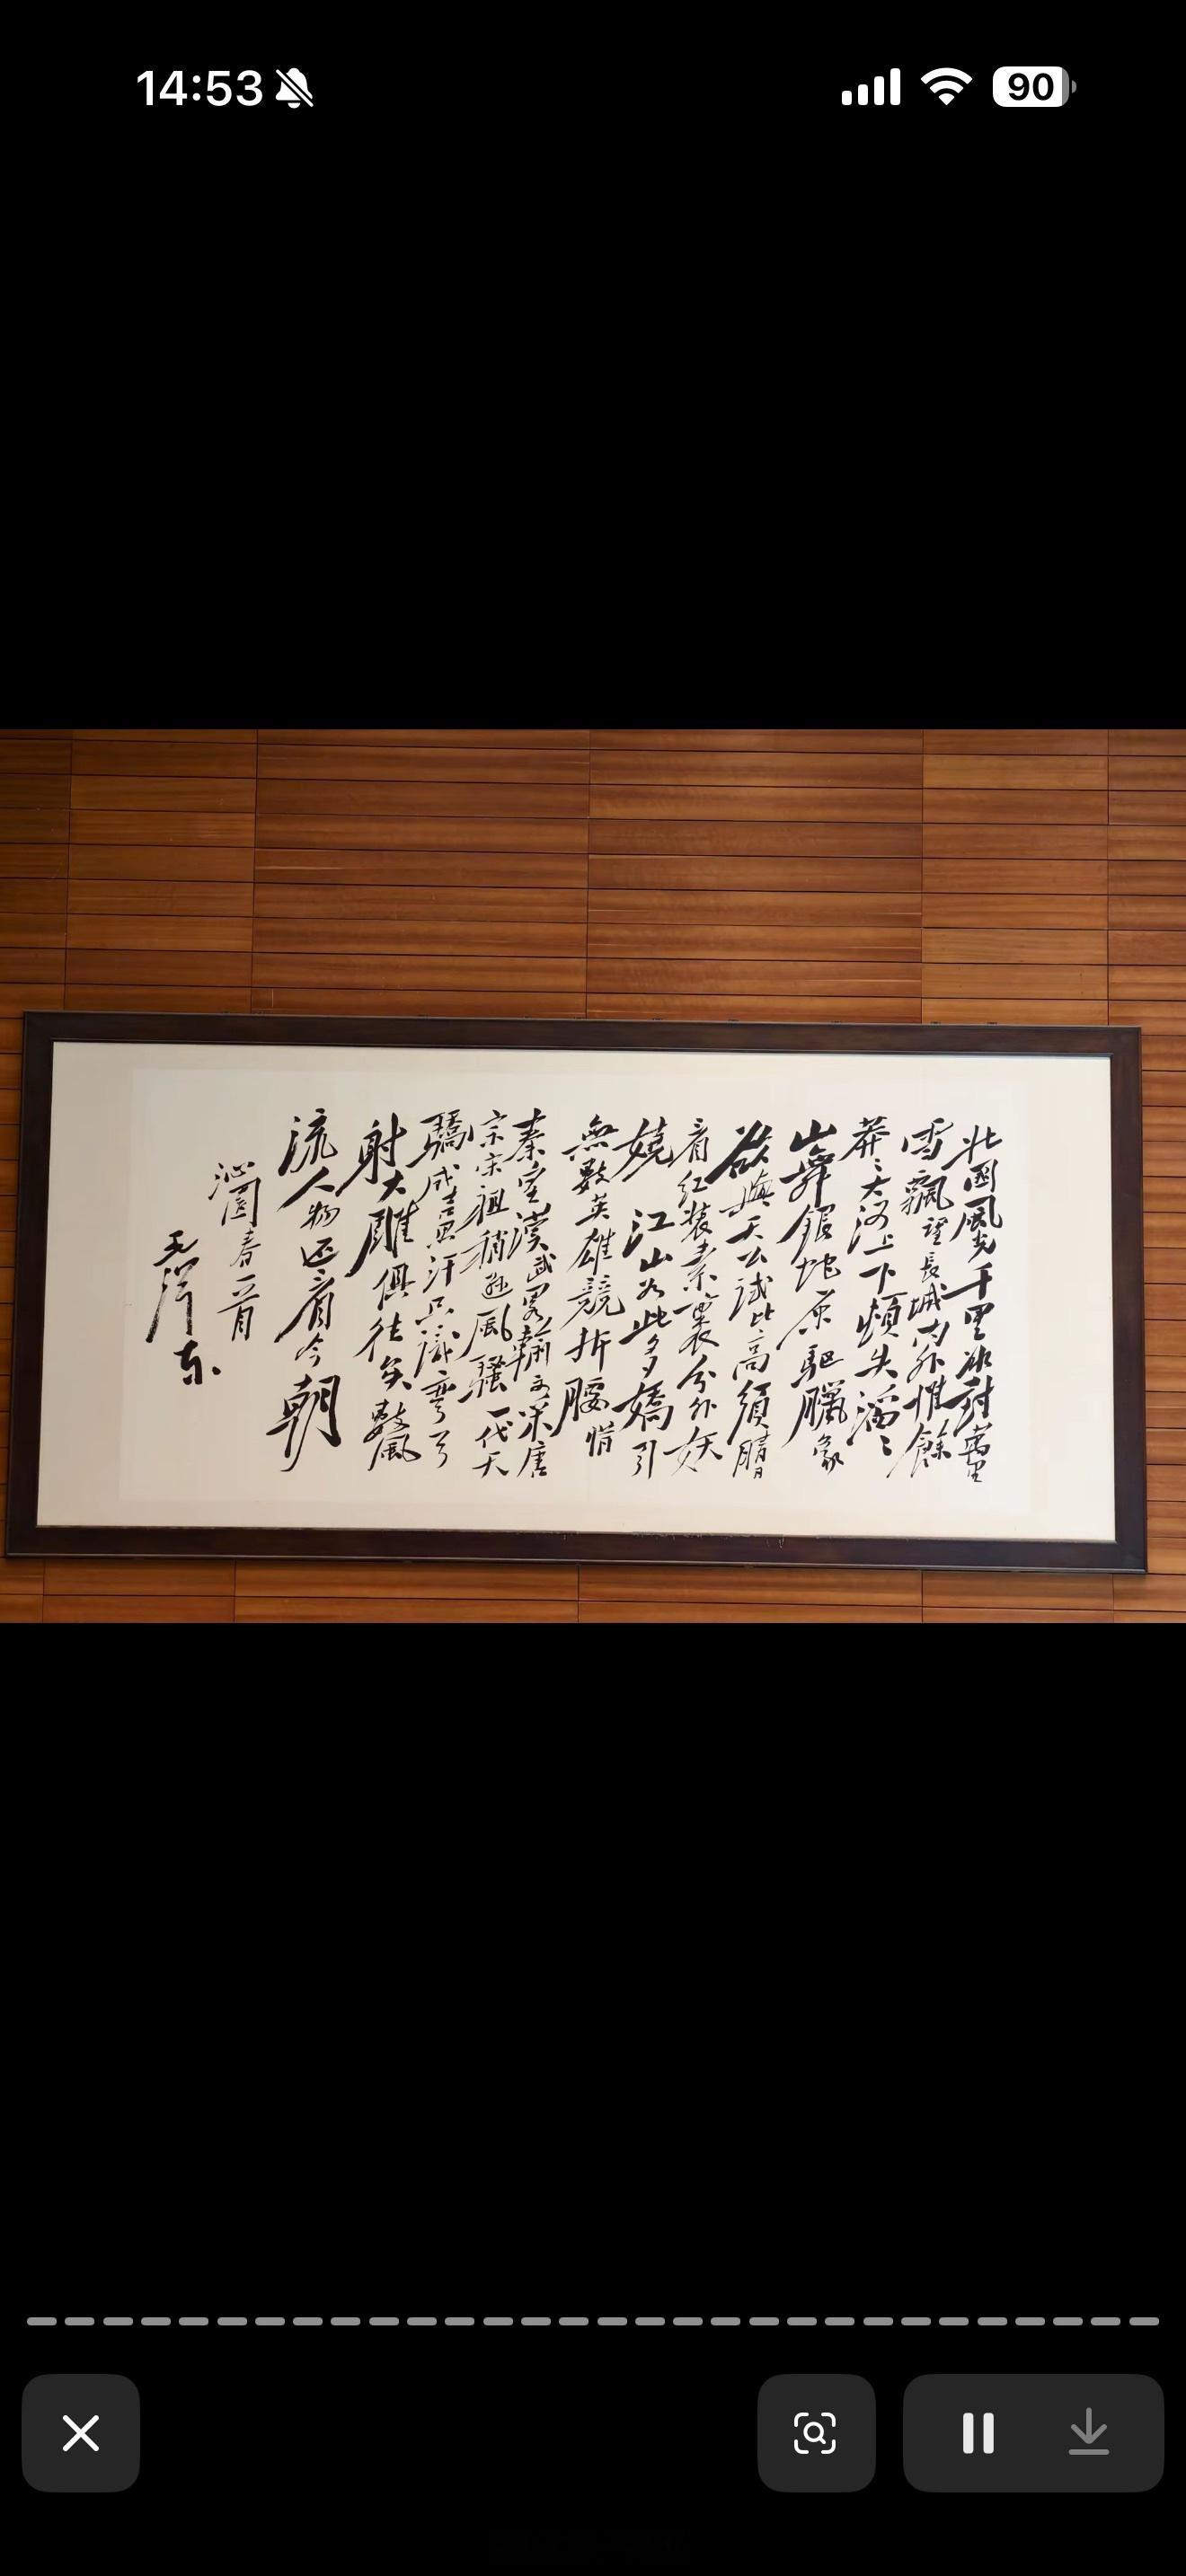 14:53
90
北國風光千里冰封萬里
雪飄望長城内外惟餘
莽〻大河上下頓失滔〻
山舞銀蛇原驅臘象
欲與天公試比高須晴日
看红装素裹分外妖
嬈江山如此多嬌引
無數英雄競折腰惜
秦皇漢武略輸文采唐
宗宋祖稍遜風騷一代天
驕成吉思汗只識彎弓
射大雕俱往矣數風
流人物还看今朝
沁園春一首
毛澤东